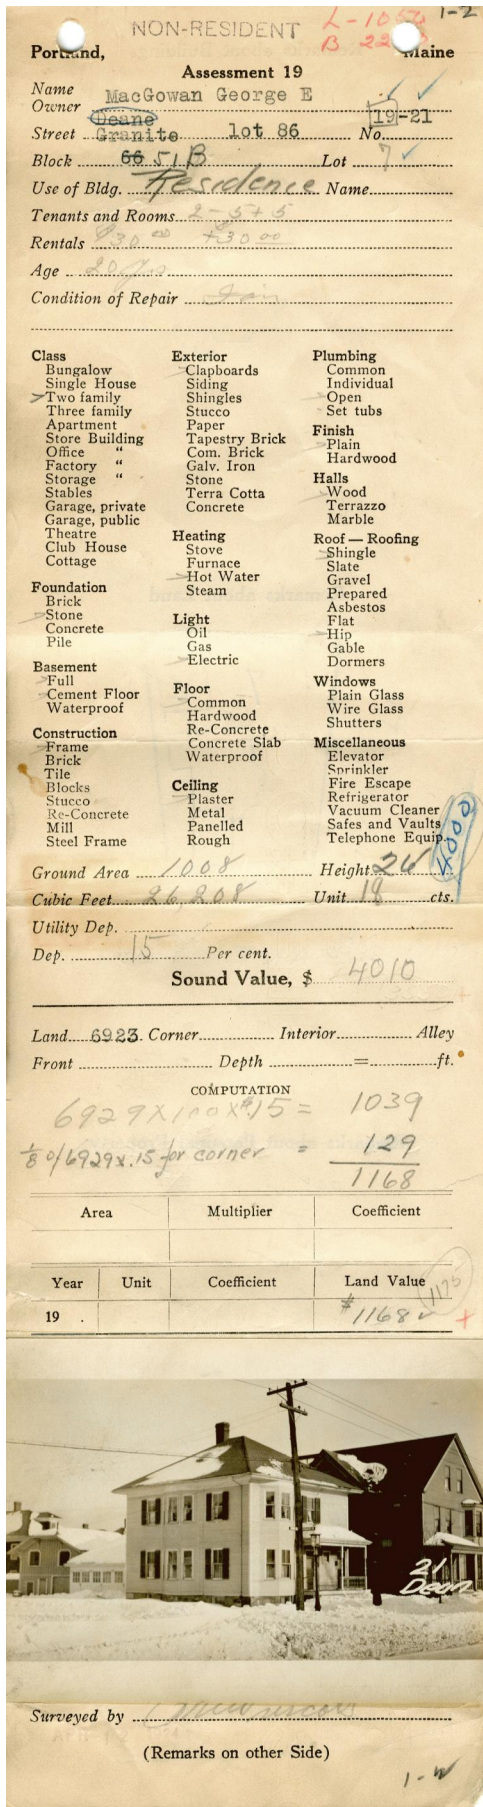 NON-RESIDENT
1-2
Portland, Maine
Assessment 19
Name
Owner MacGowan George E
Deane 19-21
Street Granite lot 86 No.
Block 66 51B Lot 7
Use of Bldg. Residence Name
Tenants and Rooms 2-5+5
Rentals $30.00 +30.00
Age 20 yrs
Condition of Repair Fair
Class
Bungalow
Single House
Two family
Three family
Apartment
Store Building
Office "
Factory "
Storage "
Stables
Garage, private
Garage, public
Theatre
Club House
Cottage
Foundation
Brick
Stone
Concrete
Pile
Basement
Full
Cement Floor
Waterproof
Construction
Frame
Brick
Tile
Blocks
Stucco
Re-Concrete
Mill
Steel Frame
Exterior
Clapboards
Siding
Shingles
Stucco
Paper
Tapestry Brick
Com. Brick
Galv. Iron
Stone
Terra Cotta
Concrete
Heating
Stove
Furnace
Hot Water
Steam
Light
Oil
Gas
Electric
Floor
Common
Hardwood
Re-Concrete
Concrete Slab
Waterproof
Ceiling
Plaster
Metal
Panelled
Rough
Plumbing
Common
Individual
Open
Set tubs
Finish
Plain
Hardwood
Halls
Wood
Terrazzo
Marble
Roof — Roofing
Shingle
Slate
Gravel
Prepared
Asbestos
Flat
Hip
Gable
Dormers
Windows
Plain Glass
Wire Glass
Shutters
Miscellaneous
Elevator
Sprinkler
Fire Escape
Refrigerator
Vacuum Cleaner
Safes and Vaults
Telephone Equip.
4000
Ground Area 1008 Height 26
Cubic Feet 26,208 Unit 18 cts.
Utility Dep.
Dep. 15 Per cent.
Sound Value, $ 4010
Land 6923 Corner Interior Alley
Front Depth = ft.
COMPUTATION
6929 x 100 x $.15 = 1039
1/8 of 6929 x .15 for corner = 129
1168
Area Multiplier Coefficient
Year Unit Coefficient Land Value
1175
19 . $1168
21
Dean
Surveyed by
(Remarks on other Side)
1-W